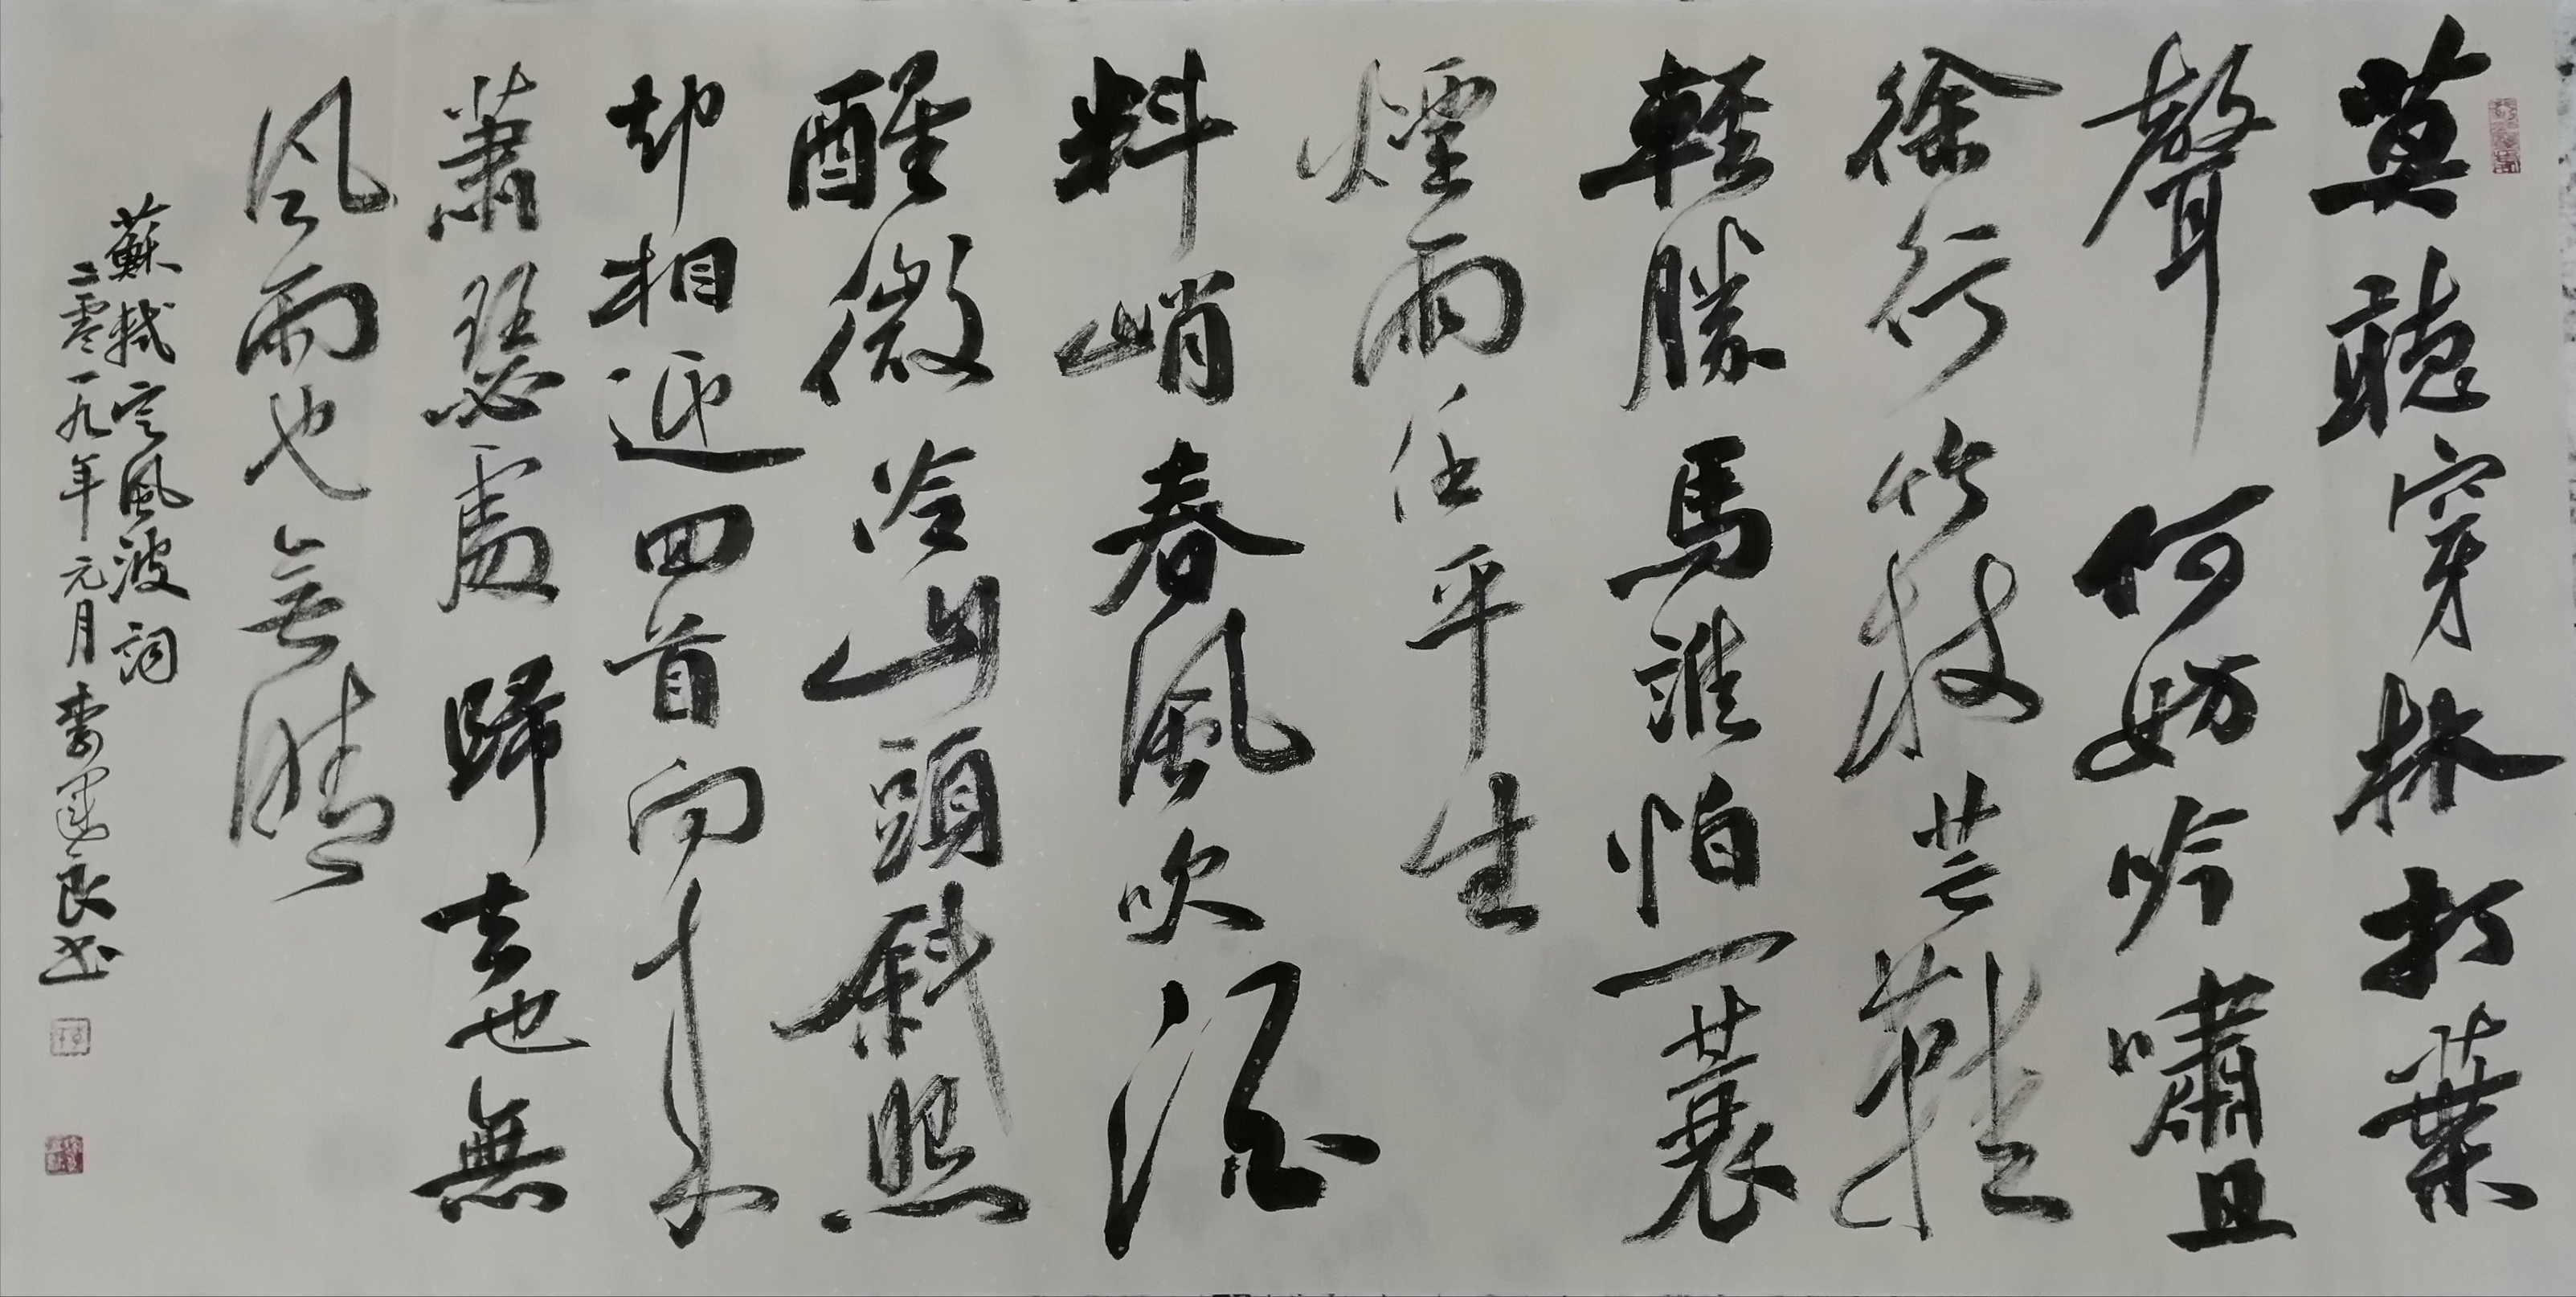 莫聽穿林打葉
聲何妨吟嘯且
徐行竹杖芒鞋
輕勝馬誰怕一蓑
煙雨任平生
料峭春風吹酒
醒微冷山頭斜照
却相迎回首向来
蕭瑟處歸去也無
风雨也無晴
蘇軾定風波詞
二零一九年元月李良书